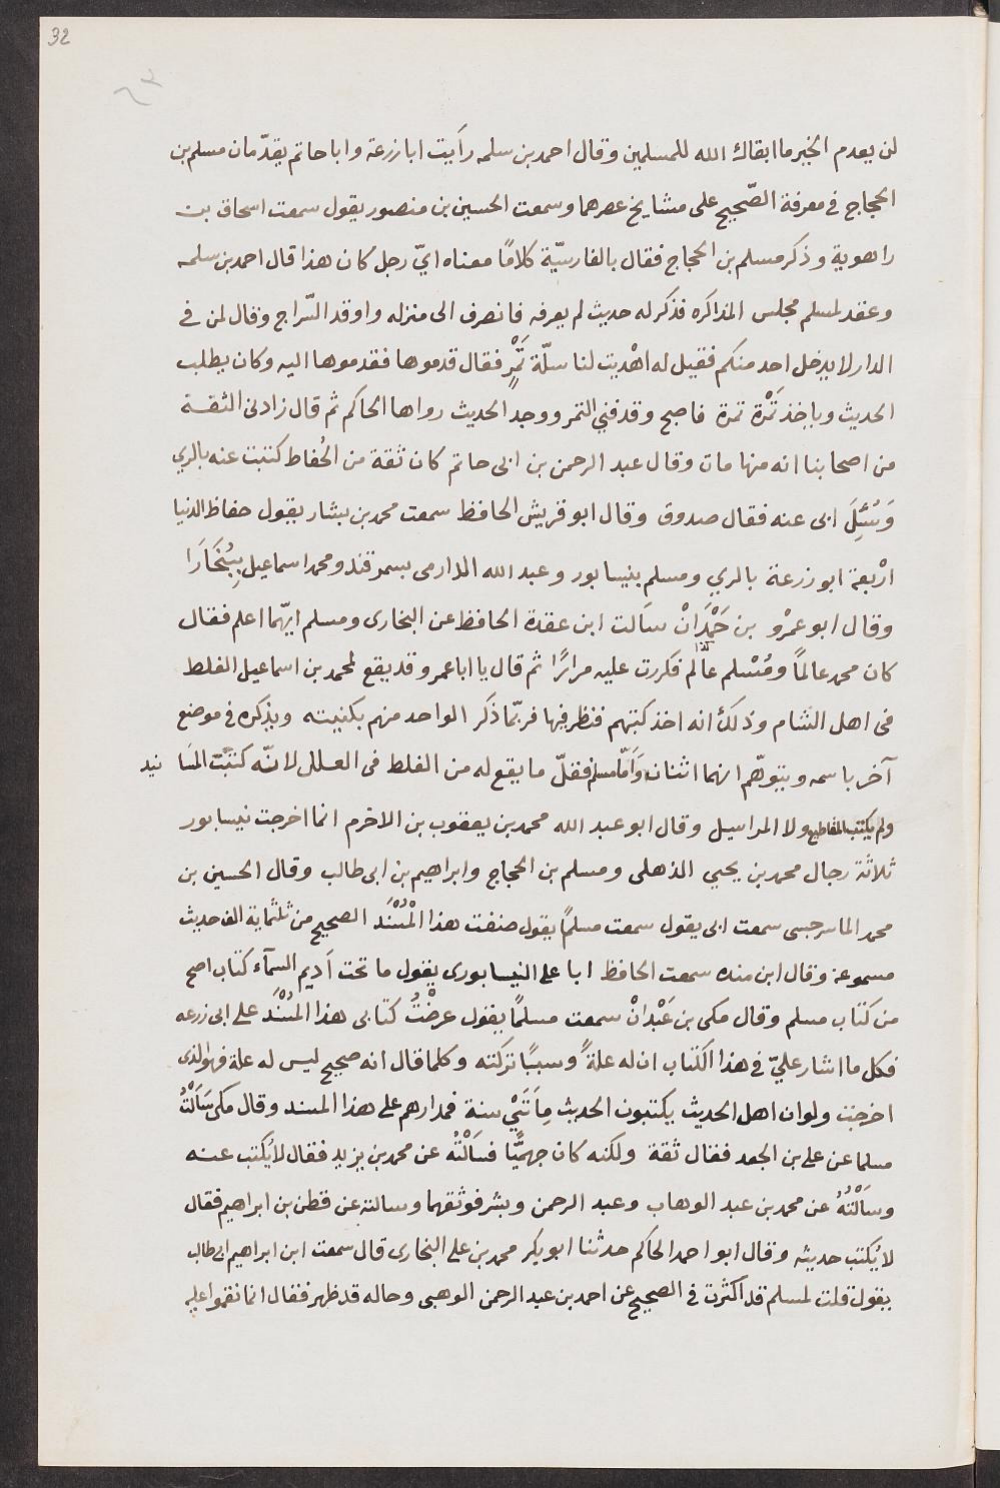 32
لن يعدم الخير ما ابقاك الله للمسلمين وقال احمد بن سلمه رأيت ابا زرعة وابا حاتم يقدّمان مسلم بن
الحجاج في معرفة الصّحيح على مشايخ عصرهما وسمعت الحسين بن منصور يقول سمعت اسحاق بن
راهوية وذكر مسلم بن الحجاج فقال بالفارسيّة كلامًا معناه ايّ رجل كان هذا قال احمد بن سلمه
وعقد لمسلم مجلس المذاكره فذكر له حديث لم يعرفه فانصرف الى منزله واوقد السّراج وقال لمن في
الدار لا يدخل احد منكم فقيل له اهْديت لنا سلّة تَمْرٍ فقال قدموها فقدموها اليه وكان يطلب
الحديث وياخذ تَمْرة تمرة فاصبح وقد فني التمر ووجد الحديث رواها الحاكم ثم قال زادنى الثقة
من اصحابنا انه منها مات وقال عبد الرحمن بن ابى حاتم كان ثقة من الحُفاط كتبت عنه بالري
وَسُئِلَ ابى عنه فقال صدوق وقال ابو قريش الحافظ سمعت محمد بن بشار يقول حفاظ الدنيا
ارْبعة ابو زرعة بالري ومسلم بنيسابور وعبد الله الدارمى بسمرقند ومحمد اسماعيل بِبُخَارَا
وقال ابو عمْرو بن حَمْدَانْ سَالت ابن عقدة الحافظ عن البخارى ومسلم ايهّما اعلم فقال
كان محمد عالمًا ومُسْلم عالم فكررت عليه مرارًا ثم قال يا ابا عمرو قد يقع لمحمد بن اسماعيل الغلط
فى اهل الشام وذلك انه اخذ كتبهم فنظر فيها فربّما ذكر الواحد منهم بكنيته ويذكره في موضع
آخر باسمه ويتوهّم انهما اثنان وَأمّا مسلم فقلّ ما يقع له من الغلط فى العلل لانّه كتبَت المسَا نيد
ولم يكتب المقاطيع ولا المراسيل وقال ابو عبد الله محمد بن يعقوب بن الاخرم انما اخرجت نيسابور
ثلاثة رجال محمد بن يحيي الذهلى ومسلم بن الحجاج وابراهيم بن ابى طالب وقال الحسين بن
محمد الماسرجسى سمعت ابى يقول سمعت مسلمًا يقول صنفت هذا المُسْنَد الصحيح من ثلثماية الف حديث
مسموعة وقال ابن منده سمعت الحافظ ابا على النيسابورى يقول ما تحت اَديم السمآء كتاب اصح
من كتاب مسلم وقال مكى بن عَبْدانْ سمعت مسلمًا يقول عرضْتُ كتابى هذا المُسْنَد على ابى زرعه
فكل ما اشار عليّ في هذا الكتاب ان له علةً وسببًا تركته وكلما قال انه صحيح ليس له علة فهو الذى
اخرجت ولو ان اهل الحديث يكتبون الحديث مِاَتَيْ سنة فمدارهم على هذا المسند وقال مكى سَاَلْتُ
مسلما عن على بن الجعد فقال ثقة ولكنه كان جهميًّا فسَاَلْتُه عن محمد بن يزيد فقال لا يُكتب عنه
وسَاَلْتُهُ عن محمد بن عبد الوهاب وعبد الرحمن وبشر فوثقهما وسالته عن قطن بن ابراهيم فقال
لا يُكتب حديثه وقال ابو احمد الحاكم حدثنا ابو بكر محمد بن على النجارى قال سمعت ابن ابراهيم ابى طالب
يقول قلت لمسلم قد اكثرت في الصحيح عن احمد بن عبد الرحمن الوهبى وحاله قد ظهر فقال انما نقموا عليه